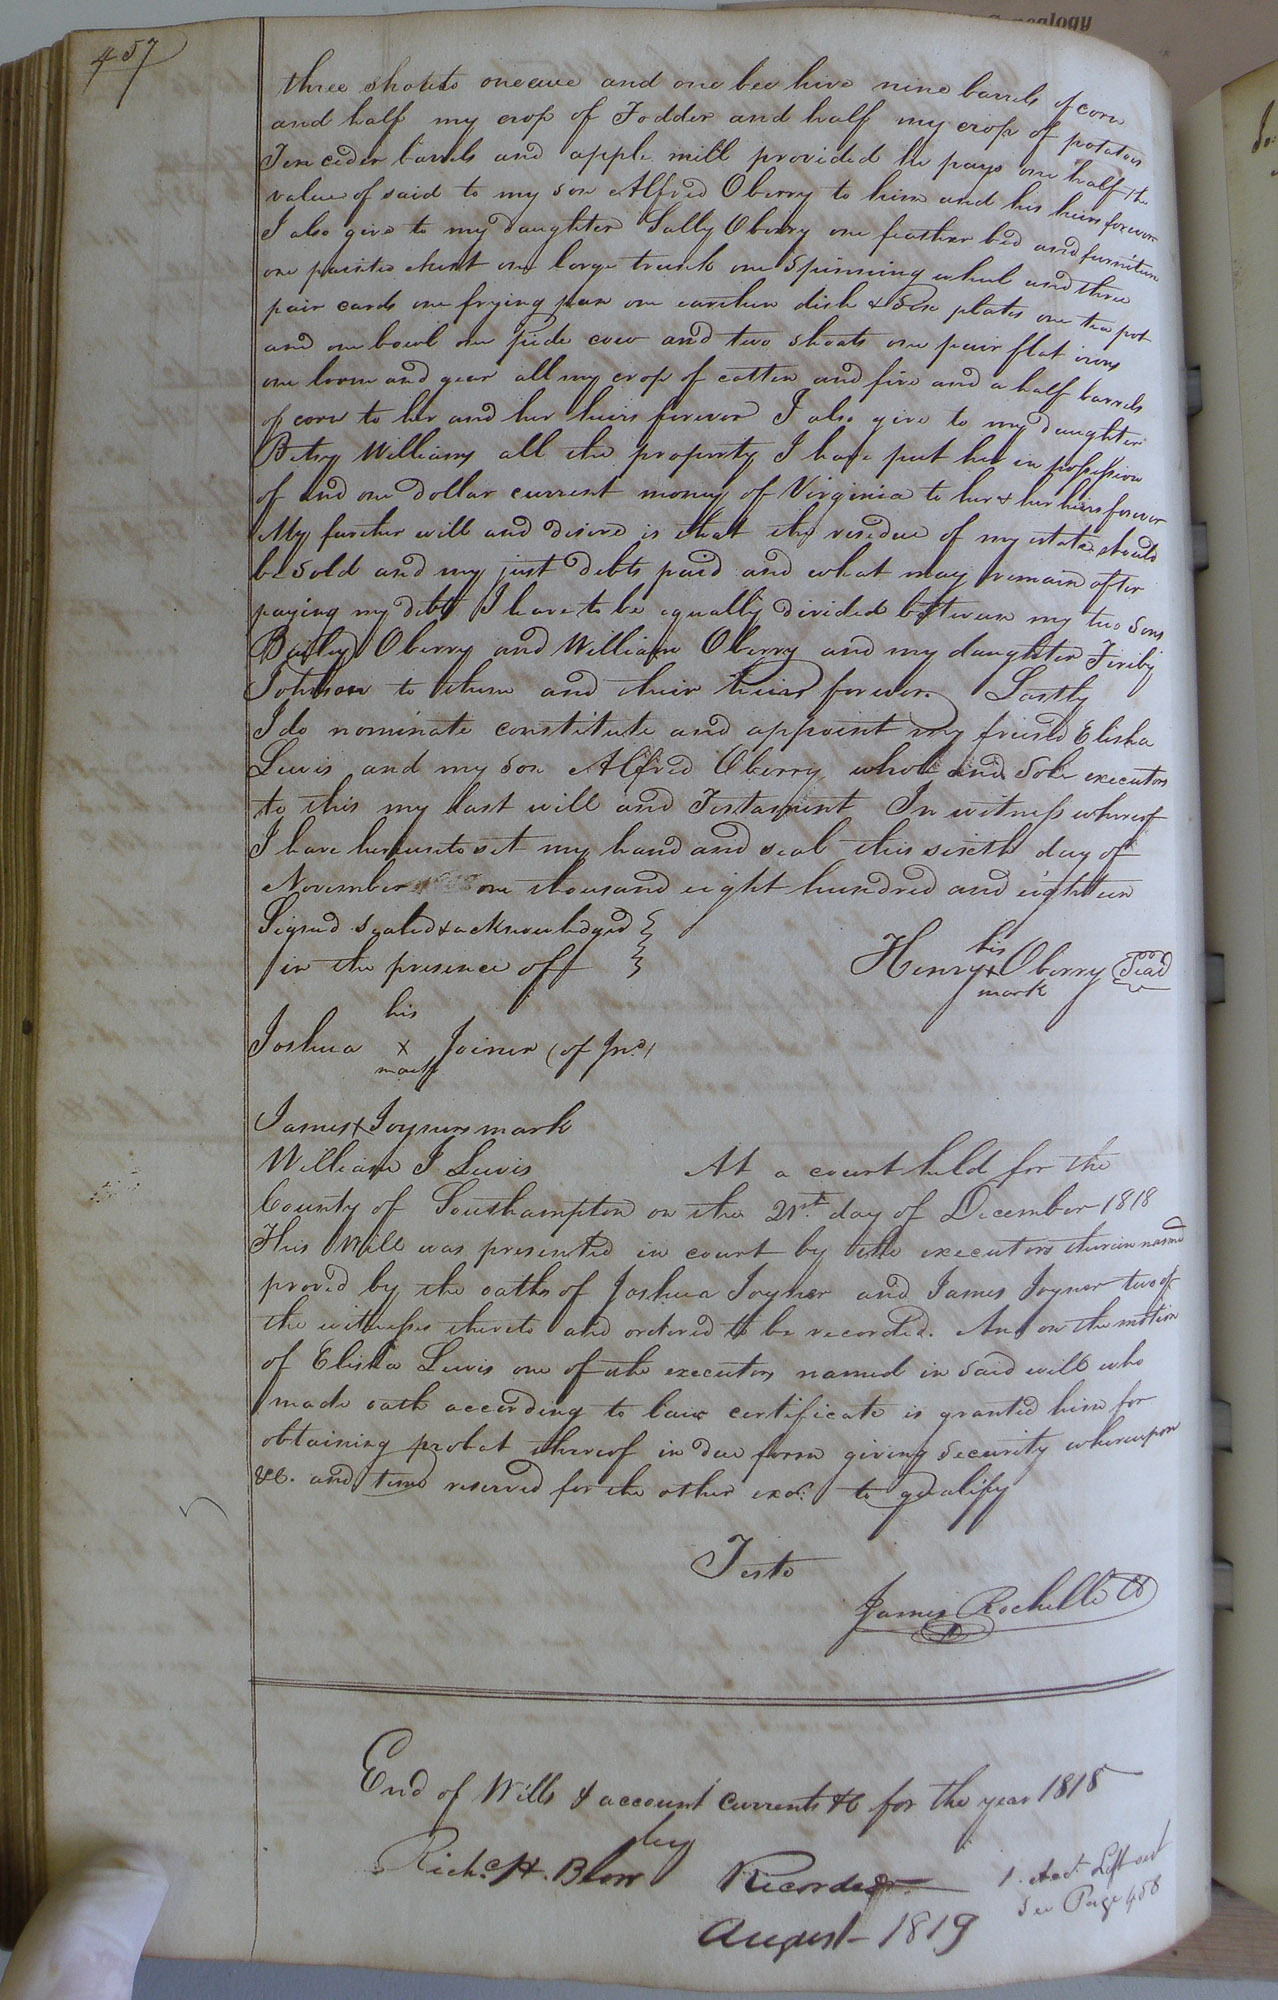 457
Genealogy
three shoats one axe and one bee hive nine barrels of corn
and half my crop of Fodder and half my crop of potatoes
Ten cider barrels and apple mill provided he pays one half the
value of said to my son Alfred Oberry to him and his heirs forever
I also give to my daughter Sally Oberry one feather bed and furniture
one painted chest one large trunk one Spinning wheel and three
pair cards one frying pan one earthen dish & Six plates one tea pot
and one bowl one pide cow and two shoats one pair flat irons
one loom and gear all my crop of cotten and five and a half barrels
of corn to her and her heirs forever I also give to my daughter
Betsy Williams all the property I have put her in possession
of and one dollar current money of Virginia to her & her heirs forever
My further will and desire is that the residue of my estate should
be sold and my just debts paid and what may remain after
paying my debts I leave to be equally divided between my two Sons
Bailey Oberry and William Oberry and my daughter Fereby
Johnson to them and their heirs forever. Lastly
I do nominate constitute and appoint my friend Elisha
Lewis and my son Alfred Oberry whole and Sole executors
to this my last will and Testament In witness whereof
I have hereunto set my hand and seal this sixth day of
November one thousand eight hundred and eighteen
Signed sealed & acknowledged
in the presence of
his
Henry x Oberry Seal
mark
his
Joshua x Joiner (of Jno)
mark
James x Joyners mark
William J Lewis At a court held for the
County of Southampton on the 21st day of December 1818
This Will was presented in court by the executors therein named
proved by the oaths of Joshua Joyner and James Joyner two of
the witnesses thereto and ordered to be recorded. And on the motion
of Elisha Lewis one of the executors named in said will who
made oath according to law certificate is granted him for
obtaining probat thereof in due form giving security whereupon
&c. and time reserved for the other exor. to qualify
Teste
James Rochelle
End of Wills & account Currents &c for the year 1818
by
Richd. H. Blow Recorder
August 1819
1. Acct. Left out
See Page 458